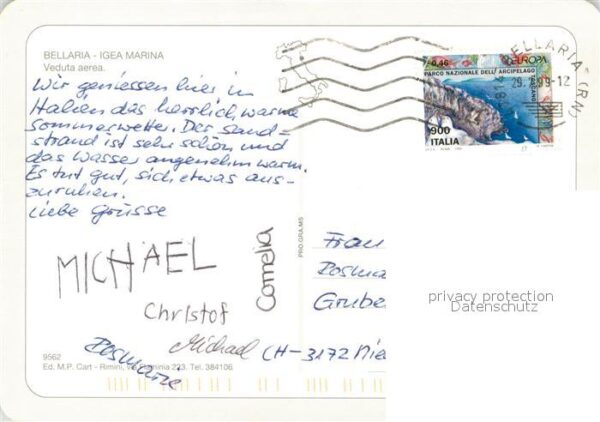 BELLARIA - IGEA MARINA
Veduta aerea.
Wir geniessen hier in
Italien das herrlich, warme
Sommerwetter. Der Sand=
strand ist sehr schön und
das Wasser angenehm warm.
Es tut gut, sich etwas aus-
zuruhen.
Liebe Grüsse
MICHAEL
Christof
Cornelia
Michael
Rosmarie
9562
Ed. M.P. Cart - Rimini, via Flaminia 223. Tel. 384106
PRO.GRA.MS
0,46 EUROPA
PARCO NAZIONALE DELL'ARCIPELAGO
TOSCANO
900
ITALIA
BELLARIA (RN)
Frau
Rosma
Gruber
CH-3172 Nie
privacy protection
Datenschutz